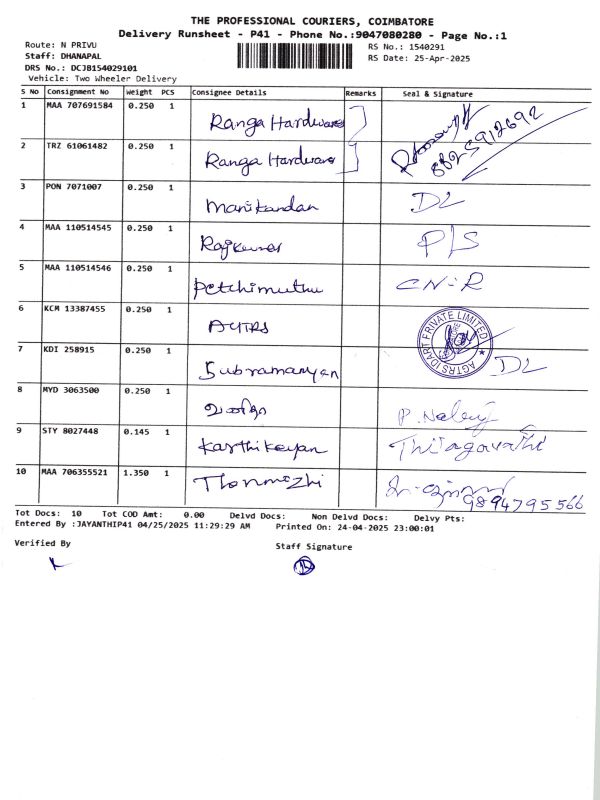 THE PROFESSIONAL COURIERS, COIMBATORE
Delivery Runsheet - P41 - Phone No.:9047080280 - Page No.:1
Route: N PRIVU
RS No.: 1540291
Staff: DHANAPAL
RS Date: 25-Apr-2025
DRS No.: DCJB154029101
Vehicle: Two Wheeler Delivery
S No Consignment No Weight PCS Consignee Details Remarks Seal & Signature
1 MAA 707691584 0.250 1 Ranga Hardware 8825912692
2 TRZ 61061482 0.250 1 Ranga Hardware
3 PON 7071007 0.250 1 Manikandan DL
4 MAA 110514545 0.250 1 Rajkumar P/S
5 MAA 110514546 0.250 1 Petchimuthu CN-R
6 KCM 13387455 0.250 1
7 KDI 258915 0.250 1 Subramaniyan DL
8 MYD 3063500 0.250 1 P.
9 STY 8027448 0.145 1 Karthikeyan Thiagavathi
10 MAA 706355521 1.350 1 Thenmozhi 9894795566
Tot Docs: 10 Tot COD Amt: 0.00 Delvd Docs: Non Delvd Docs: Delvy Pts:
Entered By :JAYANTHIP41 04/25/2025 11:29:29 AM Printed On: 24-04-2025 23:00:01
Verified By
Staff Signature